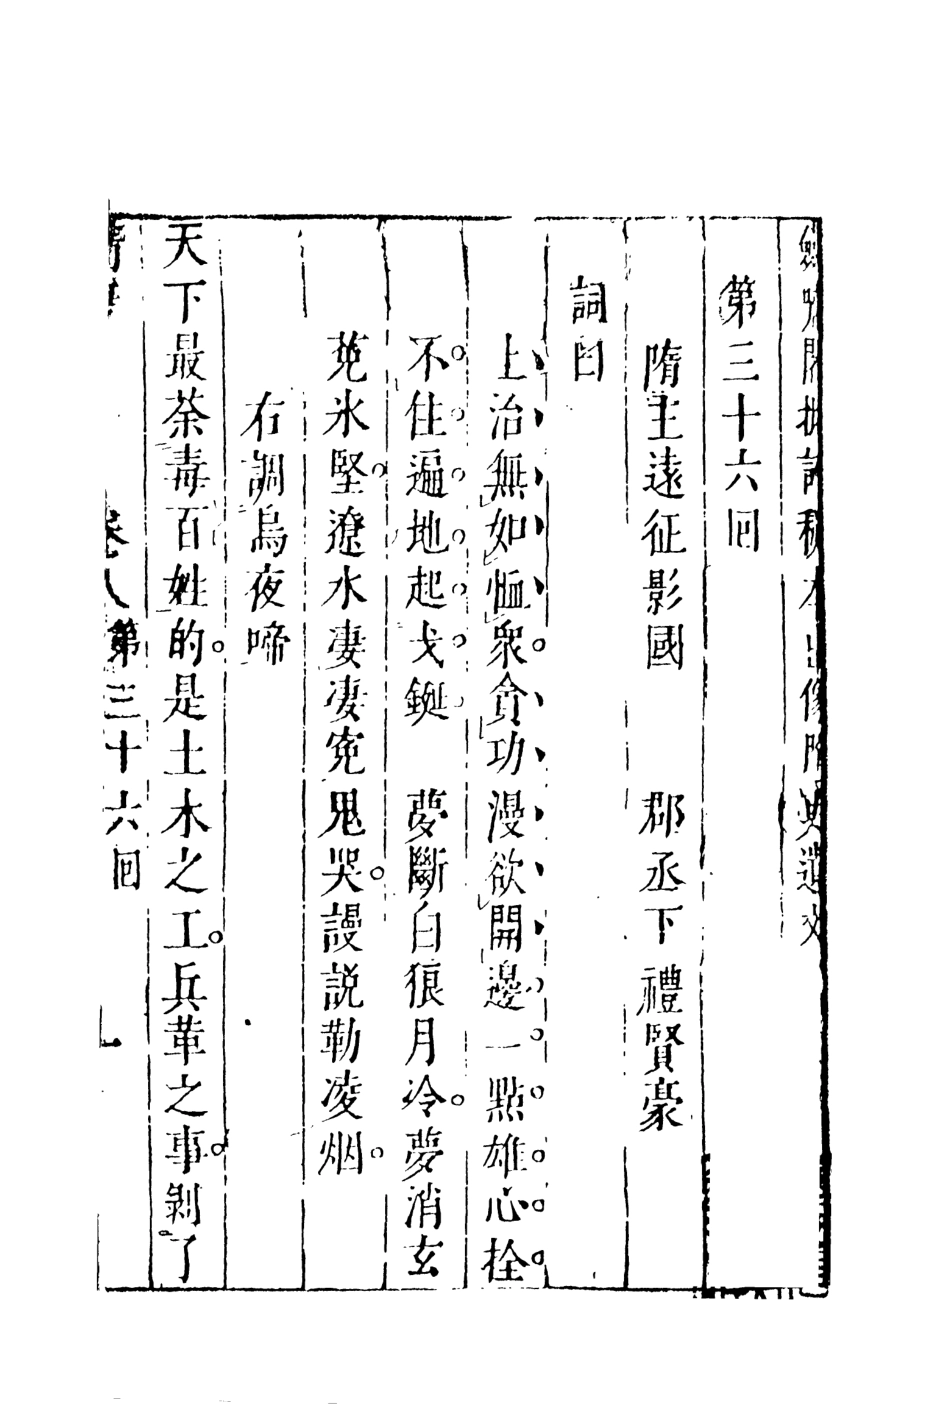 劍嘯閣批評秘本出像隋史遺文
第三十六回
隋主遠征影國 郡丞下禮賢豪
詞曰
上治無如恤衆貪功漫欲開邊一點雄心拴
不住遍地起戈鋋 夢斷白狼月冷夢消玄
菟氷堅遼水凄凄寃鬼哭謾説勒凌烟
右調烏夜啼
天下最荼毒百姓的是土木之工兵革之事剝了
卷八 第三十六回 一